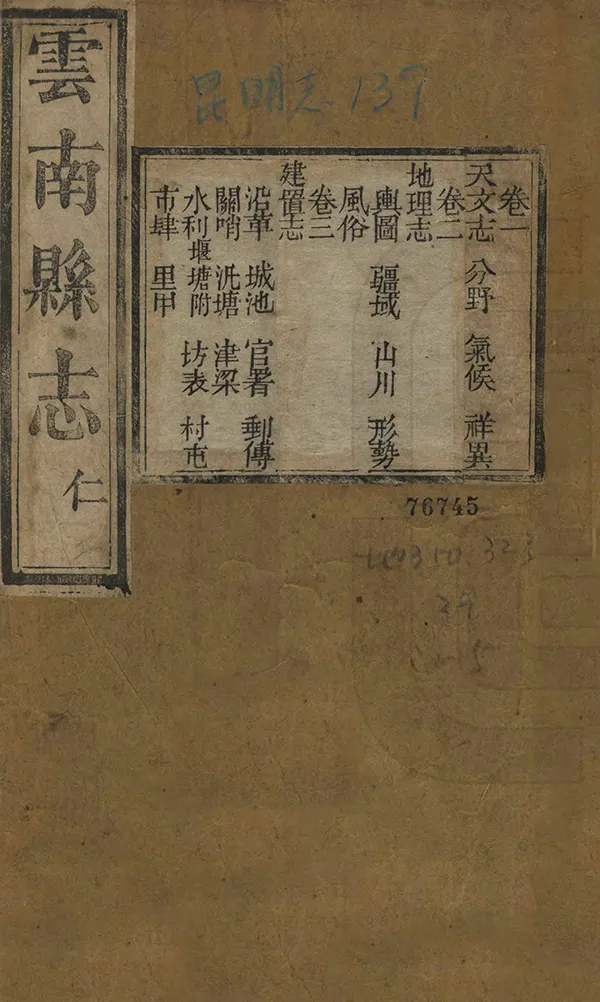 雲南縣志 仁
昆明志 137
卷一
天文志 分野 氣候 祥異
卷二
地理志
輿圖 疆域 山川 形勢
風俗
卷三
建置志
沿革 城池 官署 郵傳
關哨 汛塘 津梁
水利堰塘附 坊表 村屯
市肆 里甲
76745
323
29